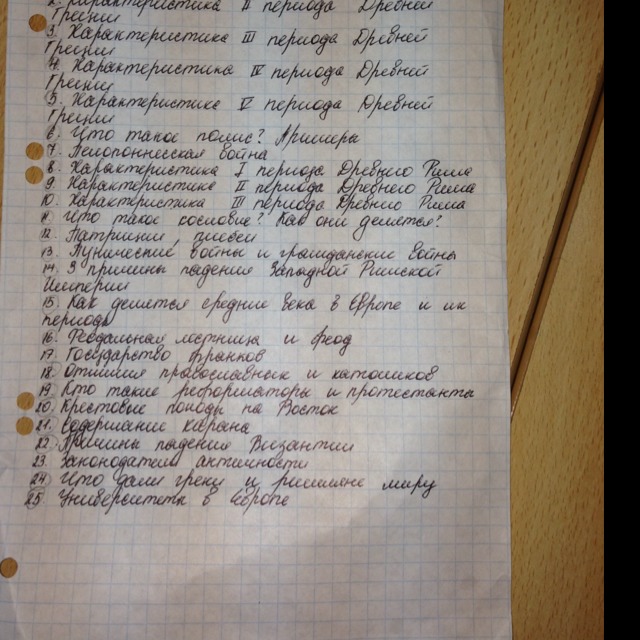 2. Характеристика II периода Древней
Греции
3. Характеристика III периода Древней
Греции
4. Характеристика IV периода Древней
Греции
5. Характеристика V периода Древней
Греции
6. Что такое полис? Примеры
7. Пелопоннесская война
8. Характеристика I периода Древнего Рима
9. Характеристика II периода Древнего Рима
10. Характеристика III периода Древнего Рима
11. Что такое сословие? Как они делятся?
12. Патриции, плебеи
13. Пунические войны и гражданские войны
14. 3 причины падения Западной Римской
Империи
15. Как делятся средние века в Европе и их
периоды
16. Феодальная лестница и феод
17. Государство франков
18. Отличия православных и католиков
19. Кто такие реформаторы и протестанты
20. Крестовые походы на Восток
21. Содержание карана
22. Причины падения Византии
23. Законодатели античности
24. Что дали греки и римляне миру
25. Университеты в Европе